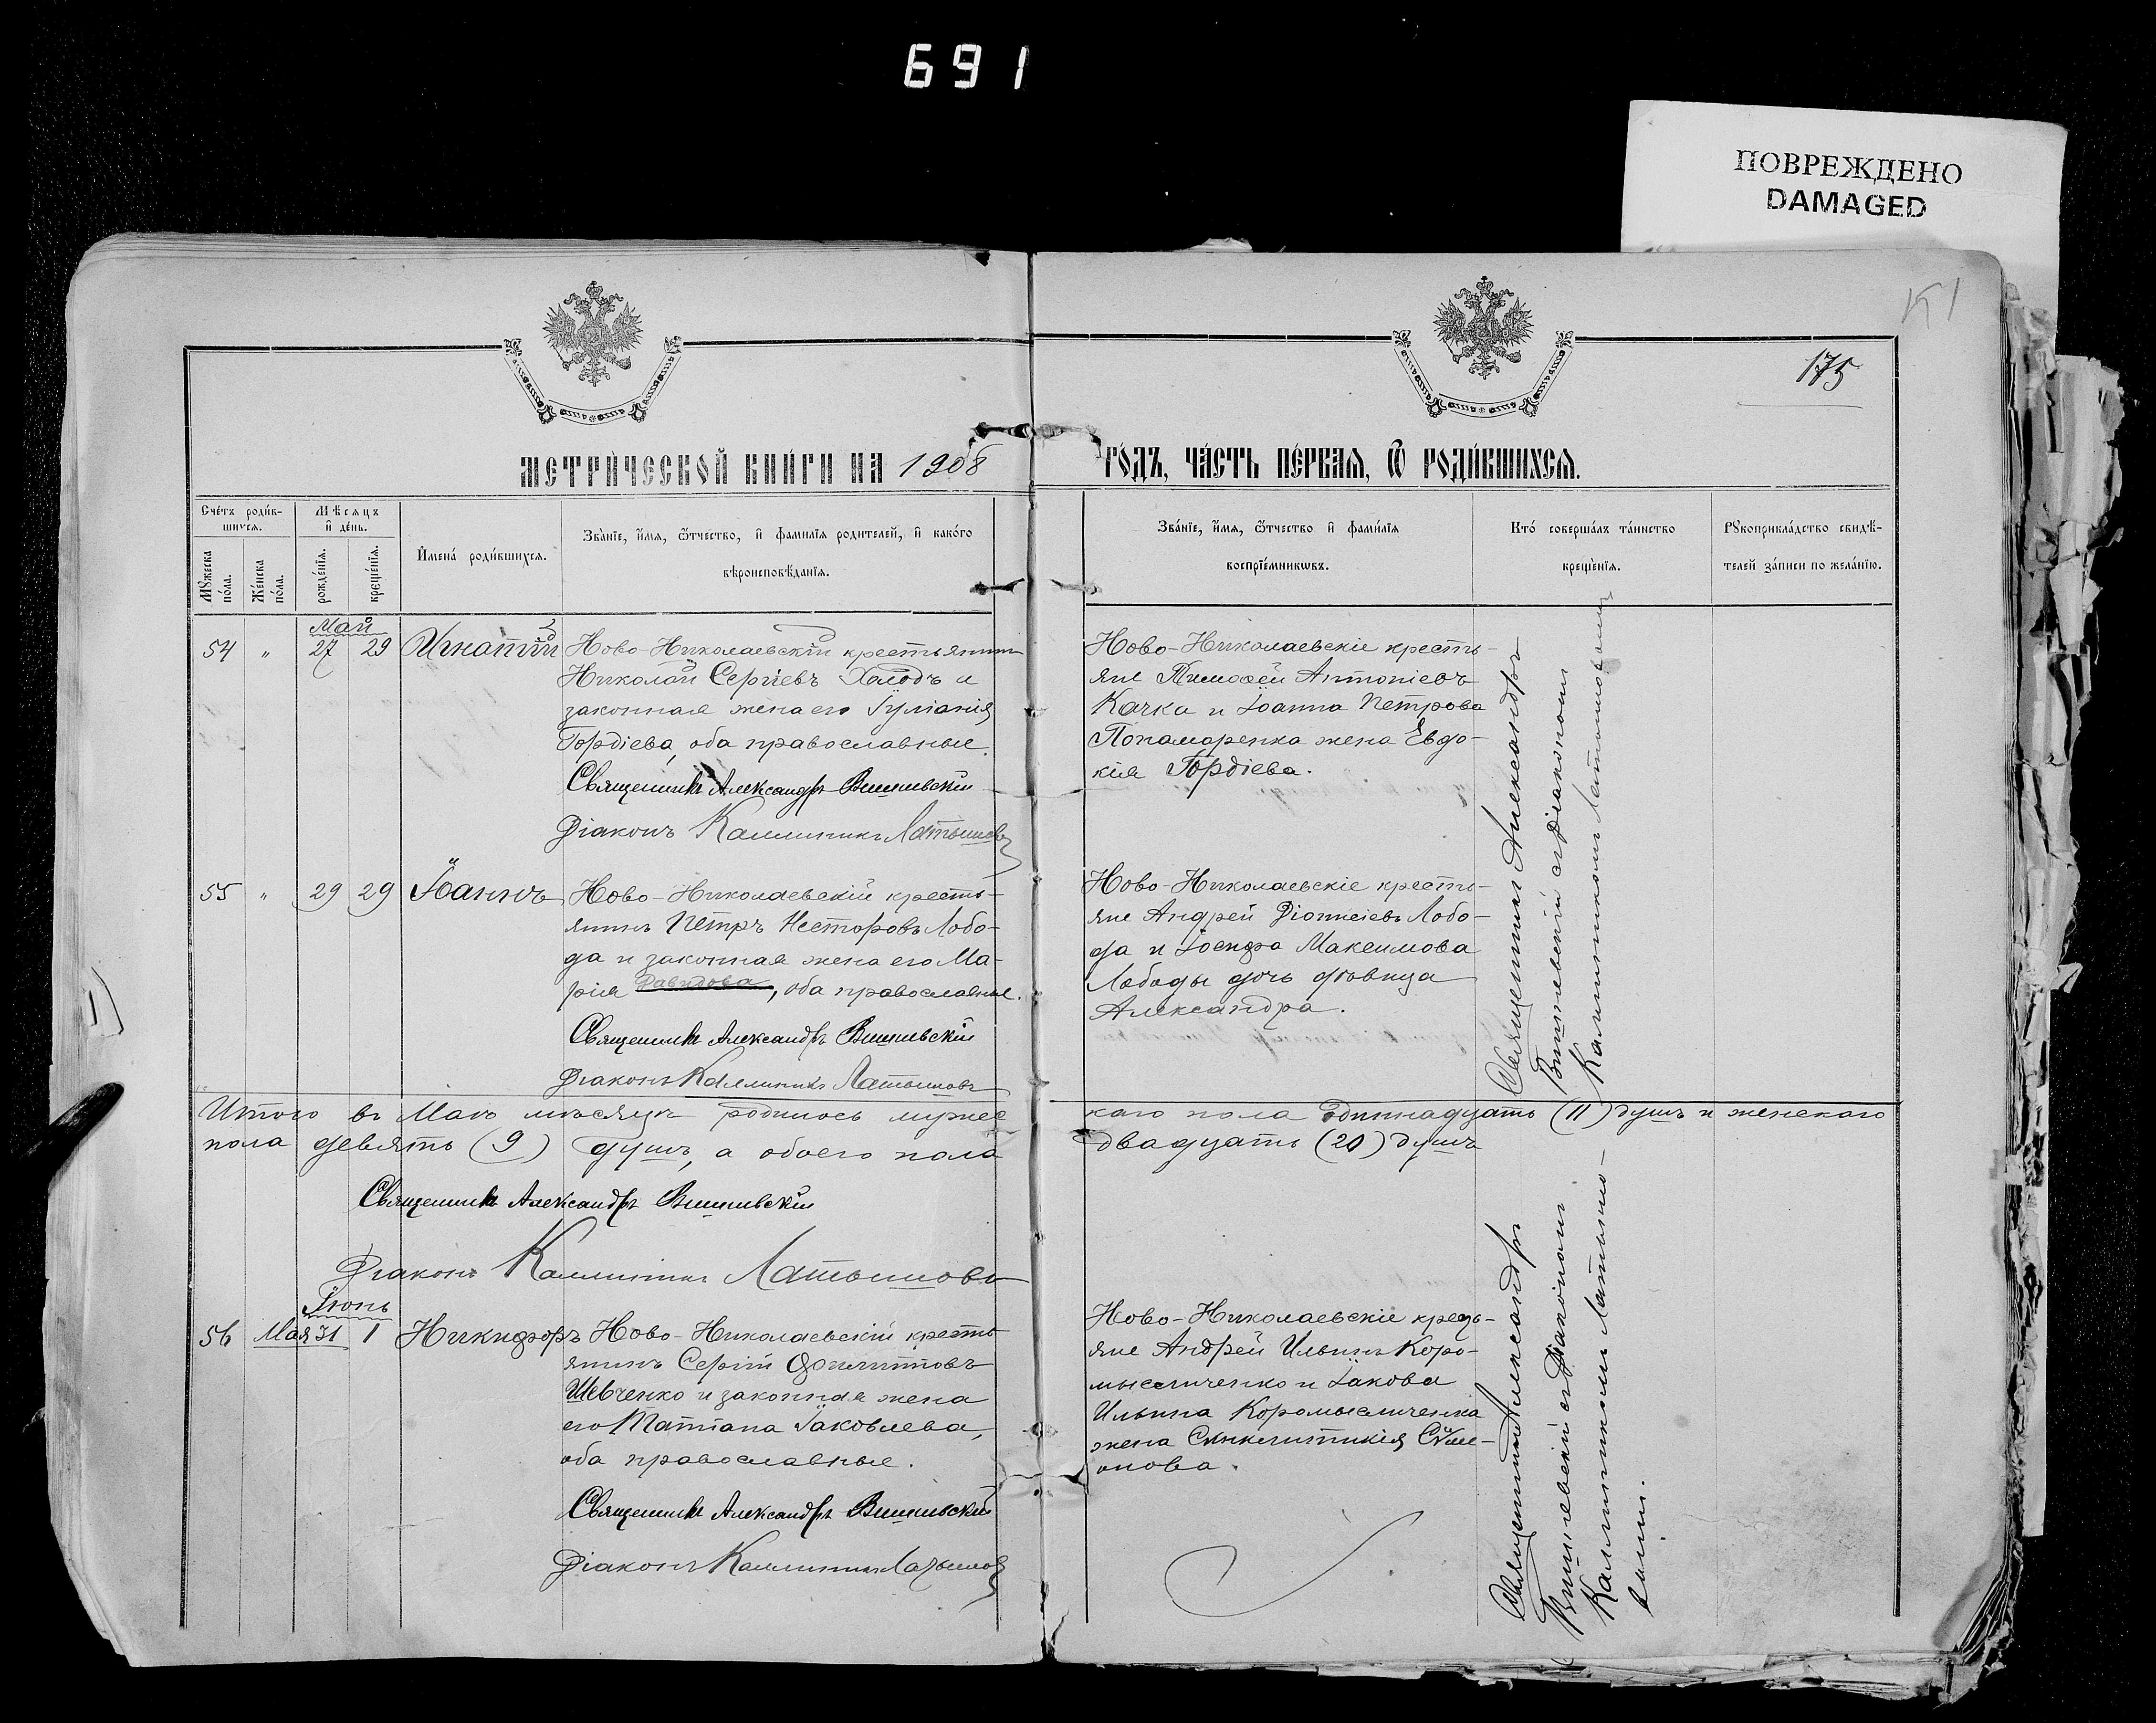 691
ПОВРЕЖДЕНО
DAMAGED
К1
175
МЕТРИ́ЧЕСКОЙ КНИ́ГИ НА 1908
ГО́ДЪ, ЧА́СТЬ ПЕ́РВАЯ, Ѿ РОДИ́ВШИХСЯ.
Сче́тъ роди́в-
шихся.
Мѣ́сяцъ
и҆ де́нь.
Мꙋ́жеска
по́ла.
Же́нска
по́ла.
рожде́нїѧ.
креще́нїѧ.
И҆мена́ роди́вшихсѧ.
Зва́нїе, и҆́мѧ, ѻ҆́тчество, и҆ фами́лїѧ роди́телей, и҆ како́гѡ
вѣроисповѣ́данїѧ.
Зва́нїе, и҆́мѧ, ѻ҆́тчество и҆ фами́лїѧ
воспрїе́мникѡвъ.
Кто̀ соверша́лъ та́инство
креще́нїѧ.
Рꙋкоприкла́дство свидѣ́-
телей за́писи по жела́нїю.
Май
54 " 27 29 Игнатій
Ново-Николаевскій крестьянинъ
Николай Сергіевъ Холодъ и
законная жена его Іуліанія
Гордіева, оба православные.
Священникъ Александръ Вишневскій
Діаконъ Каллиникъ Латышовъ
Ново-Николаевскіе кресть-
яне Тимоѳей Антоніевъ
Качка и Іоанна Петрова
Понаморенка жена Евдо-
кія Гордіева.
Священникъ Александръ
Вишневскій съ Діакономъ
Каллиникомъ Латышовымъ
55 " 29 29 Іоаннъ
Ново-Николаевскій кресть-
янинъ Петръ Несторовъ Лобо-
да и законная жена его Ма-
рія Давидова, оба православные.
Священникъ Александръ Вишневскій
Діаконъ Каллиникъ Латышовъ
Ново-Николаевскіе кресть-
яне Андрей Діонисіевъ Лобо-
да и Іосифа Максимова
Лободы дочь дѣвица
Александра.
Итого въ Маѣ мѣсяцѣ родилось мужес
каго пола одиннадцать (11) душъ и женскаго
пола девять (9) душъ, а обоего пола
двадцать (20) душъ
Священникъ Александръ Вишневскій
Діаконъ Каллиникъ Латышовъ
Іюнь
56 Мая 31 1 Никифоръ
Ново-Николаевскій кресть-
янинъ Сергій Филипповъ
Шевченко и законная жена
его Татіана Іаковлева,
оба православные.
Священникъ Александръ Вишневскій
Діаконъ Каллиникъ Латышовъ
Ново-Николаевскіе кресть-
яне Андрей Ильинъ Коро-
мысличенко и Іакова
Ильина Коромысличенка
жена Синклитикія Сѵме-
онова.
Священникъ Александръ
Вишневскій съ Діакономъ
Каллиникомъ Латышо-
вымъ.